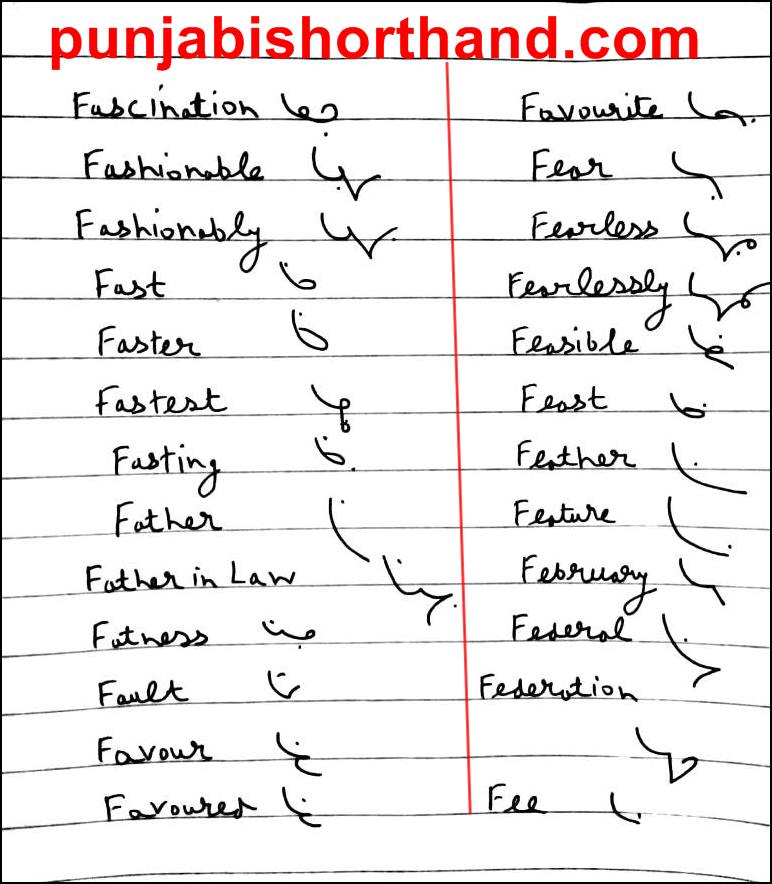 punjabishorthand.com
Fascination
Fashionable
Fashionably
Fast
Faster
Fastest
Fasting
Father
Father in Law
Fatness
Fault
Favour
Favoured
Favourite
Fear
Fearless
Fearlessly
Feasible
Feast
Feather
Feature
February
Federal
Federation
Fee